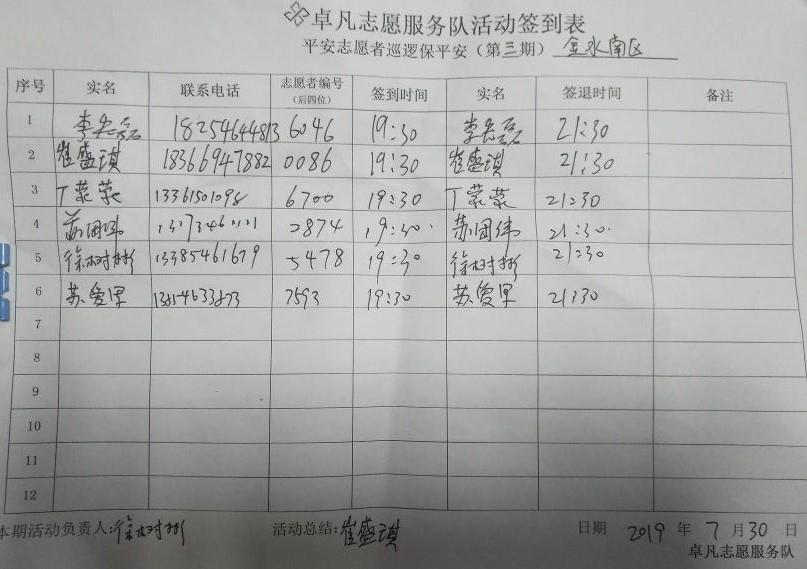 卓凡志愿服务队活动签到表
平安志愿者巡逻保平安（第三期） 金水南区
序号 实名 联系电话 志愿者编号（后四位） 签到时间 实名 签退时间 备注
1 18254644813 6046 19:30 21:30
2 崔盛琪 18366947882 0086 19:30 崔盛琪 21:30
3 丁荣荣 13361501098 6700 19:30 丁荣荣 21:30
4 苏国伟 2874 19:30 苏国伟 21:30
5 徐树彬 13385461679 5478 19:30 徐树彬 21:30
6 苏爱军 7593 19:30 苏爱军 21:30
7
8
9
10
11
12
本期活动负责人:徐树彬 活动总结:崔盛琪 日期 2019 年 7 月 30 日
卓凡志愿服务队